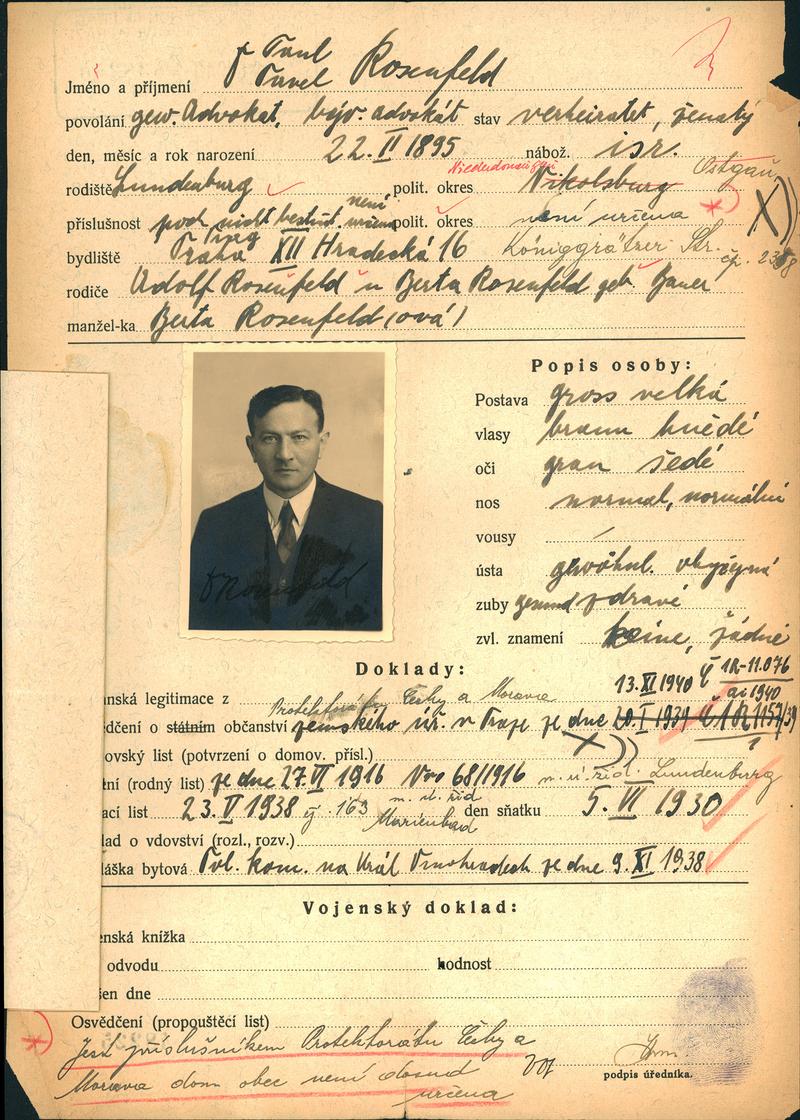 Paul
Jméno a příjmení Pavel Rosenfeld
povolání gew. Advokat, býv. advokát stav verheiratet, ženatý
den, měsíc a rok narození 22. II 1895 nábož. isr.
rodiště Lundenburg polit. okres Nikolsburg Ostgau
není
příslušnost noch nicht bestimt. určena polit. okres není určena
bydliště Praha XII Hradecká 16 Königgrätzer Str. čp.
rodiče Adolf Rosenfeld u Berta Rosenfeld geb. Bauer
manžel-ka Berta Rosenfeld (ová)
Popis osoby:
Postava gross velká
vlasy braun hnědé
oči grau šedé
nos normal, normální
vousy
ústa gewöhnl. obyčejná
zuby gesund zdravé
zvl. znamení keine, žádné
Rosenfeld
Doklady:
13. XI 1940 č 1R-11.076
ai 1940
anská legitimace z Protektorátu Čechy a Morava
ědčení o státním občanství zemského úř. v Praze ze dne 20. I 1939
ovský list (potvrzení o domov. přísl.)
tní (rodný list) ze dne 27. VI 1916 No 68/1916 Lundenburg
ací list 23. V 1938 čj. 163 Marienbad den sňatku 5. VI 1930
lad o vdovství (rozl., rozv.)
láška bytová Pol. kom. na Král. Vinohradech ze dne 9. XI 1938
Vojenský doklad:
enská knížka
odvodu hodnost
šen dne
Osvědčení (propouštěcí list)
Jest příslušníkem Protektorátu Čechy a
Morava dom. obec není dosud
určena
podpis úředníka.